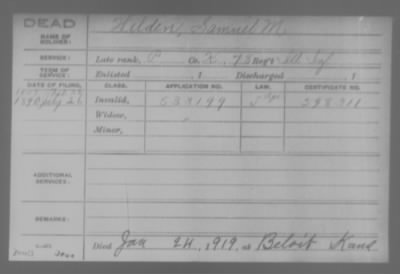 DEAD
NAME OF SOLDIER: Hilden, Samuel M.
SERVICE: Late rank, P Co. K, 73 Reg't Ill Inf
TERM OF SERVICE: Enlisted , 1 Discharged , 1
DATE OF FILING. CLASS. APPLICATION NO. LAW. CERTIFICATE NO.
1890 July 26 Invalid, 633199 298911
Widow,
Minor,
ADDITIONAL SERVICES:
REMARKS:
Died Jan 24, 1919, at Beloit Kans